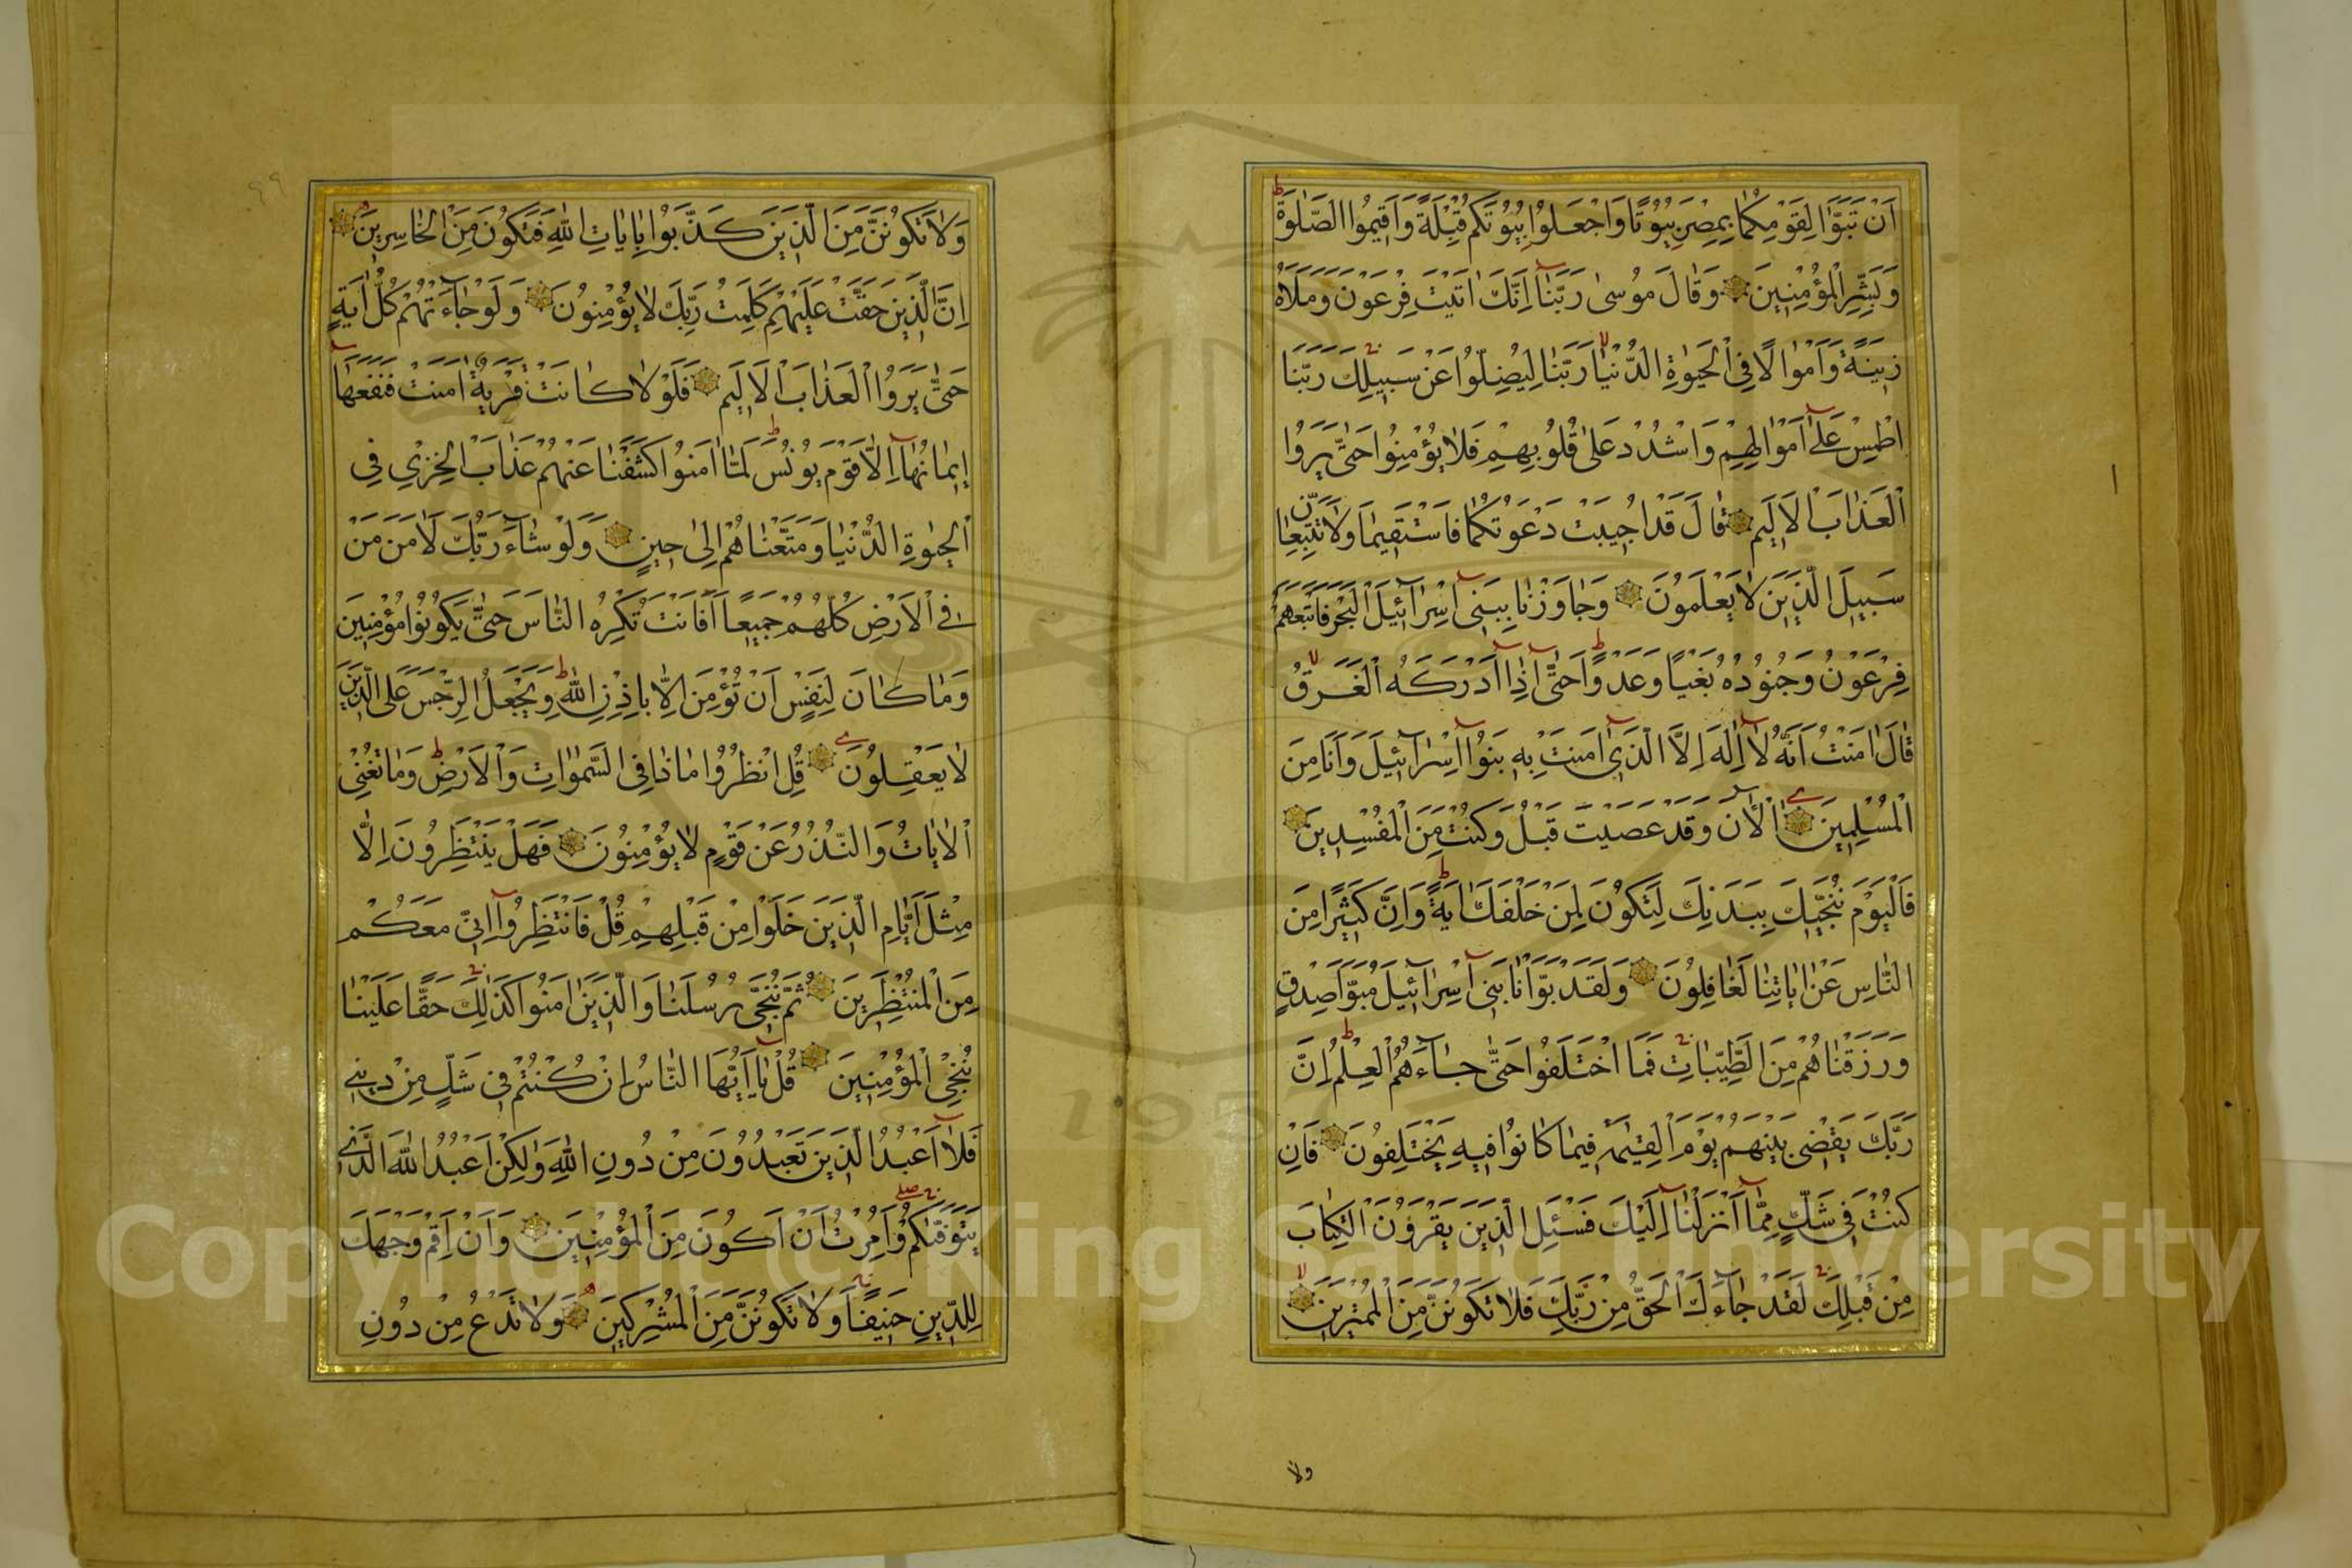 اَنْ تَبَوَّاٰ لِقَوْمِكُمَا بِمِصْرَ بُيُوتًا وَاجْعَلُوا بُيُوتَكُمْ قِبْلَةً وَاَقِيمُوا الصَّلٰوةَ
وَبَشِّرِ الْمُؤْمِنِينَ وَقَالَ مُوسٰى رَبَّنَٓا اِنَّكَ اٰتَيْتَ فِرْعَوْنَ وَمَلَاَهُ
زِينَةً وَاَمْوَالًا فِي الْحَيٰوةِ الدُّنْيَا رَبَّنَا لِيُضِلُّوا عَنْ سَبِيلِكَ رَبَّنَا
اطْمِسْ عَلٰٓى اَمْوَالِهِمْ وَاشْدُدْ عَلٰى قُلُوبِهِمْ فَلَا يُؤْمِنُوا حَتّٰى يَرَوُا
الْعَذَابَ الْاَلِيمَ قَالَ قَدْ اُجِيبَتْ دَعْوَتُكُمَا فَاسْتَقِيمَا وَلَا تَتَّبِعَانِّ
سَبِيلَ الَّذِينَ لَا يَعْلَمُونَ وَجَاوَزْنَا بِبَنِٓى اِسْرَٓائِيلَ الْبَحْرَ فَاَتْبَعَهُمْ
فِرْعَوْنُ وَجُنُودُهُ بَغْيًا وَعَدْوًا حَتّٰٓى اِذَٓا اَدْرَكَهُ الْغَرَقُ
قَالَ اٰمَنْتُ اَنَّهُ لَٓا اِلٰهَ اِلَّا الَّذِٓى اٰمَنَتْ بِهِ بَنُٓوا اِسْرَٓائِيلَ وَاَنَا مِنَ
الْمُسْلِمِينَ اٰلْاٰنَ وَقَدْ عَصَيْتَ قَبْلُ وَكُنْتَ مِنَ الْمُفْسِدِينَ
فَالْيَوْمَ نُنَجِّيكَ بِبَدَنِكَ لِتَكُونَ لِمَنْ خَلْفَكَ اٰيَةً وَاِنَّ كَثِيرًا مِنَ
النَّاسِ عَنْ اٰيَاتِنَا لَغَافِلُونَ وَلَقَدْ بَوَّاْنَا بَنِٓى اِسْرَٓائِيلَ مُبَوَّاَ صِدْقٍ
وَرَزَقْنَاهُمْ مِنَ الطَّيِّبَاتِ فَمَا اخْتَلَفُوا حَتّٰى جَٓاءَهُمُ الْعِلْمُ اِنَّ
رَبَّكَ يَقْضِى بَيْنَهُمْ يَوْمَ الْقِيٰمَةِ فِيمَا كَانُوا فِيهِ يَخْتَلِفُونَ فَاِنْ
كُنْتَ فِى شَكٍّ مِمَّٓا اَنْزَلْنَٓا اِلَيْكَ فَسْـَٔلِ الَّذِينَ يَقْرَؤُنَ الْكِتَابَ
مِنْ قَبْلِكَ لَقَدْ جَٓاءَكَ الْحَقُّ مِنْ رَبِّكَ فَلَا تَكُونَنَّ مِنَ الْمُمْتَرِينَ
ولا
وَلَا تَكُونَنَّ مِنَ الَّذِينَ كَذَّبُوا بِاٰيَاتِ اللّٰهِ فَتَكُونَ مِنَ الْخَاسِرِينَ
اِنَّ الَّذِينَ حَقَّتْ عَلَيْهِمْ كَلِمَتُ رَبِّكَ لَا يُؤْمِنُونَ وَلَوْ جَٓاءَتْهُمْ كُلُّ اٰيَةٍ
حَتّٰى يَرَوُا الْعَذَابَ الْاَلِيمَ فَلَوْلَا كَانَتْ قَرْيَةٌ اٰمَنَتْ فَنَفَعَهَٓا
اِيمَانُهَٓا اِلَّا قَوْمَ يُونُسَ لَمَّٓا اٰمَنُوا كَشَفْنَا عَنْهُمْ عَذَابَ الْخِزْىِ فِى
الْحَيٰوةِ الدُّنْيَا وَمَتَّعْنَاهُمْ اِلٰى حِينٍ وَلَوْ شَٓاءَ رَبُّكَ لَاٰمَنَ مَنْ
فِى الْاَرْضِ كُلُّهُمْ جَمِيعًا اَفَاَنْتَ تُكْرِهُ النَّاسَ حَتّٰى يَكُونُوا مُؤْمِنِينَ
وَمَا كَانَ لِنَفْسٍ اَنْ تُؤْمِنَ اِلَّا بِاِذْنِ اللّٰهِ وَيَجْعَلُ الرِّجْسَ عَلَى الَّذِينَ
لَا يَعْقِلُونَ قُلِ انْظُرُوا مَاذَا فِى السَّمٰوَاتِ وَالْاَرْضِ وَمَا تُغْنِى
الْاٰيَاتُ وَالنُّذُرُ عَنْ قَوْمٍ لَا يُؤْمِنُونَ فَهَلْ يَنْتَظِرُونَ اِلَّا
مِثْلَ اَيَّامِ الَّذِينَ خَلَوْا مِنْ قَبْلِهِمْ قُلْ فَانْتَظِرُٓوا اِنِّى مَعَكُمْ
مِنَ الْمُنْتَظِرِينَ ثُمَّ نُنَجِّى رُسُلَنَا وَالَّذِينَ اٰمَنُوا كَذٰلِكَ حَقًّا عَلَيْنَا
نُنْجِ الْمُؤْمِنِينَ قُلْ يَٓا اَيُّهَا النَّاسُ اِنْ كُنْتُمْ فِى شَكٍّ مِنْ دِينِى
فَلَٓا اَعْبُدُ الَّذِينَ تَعْبُدُونَ مِنْ دُونِ اللّٰهِ وَلٰكِنْ اَعْبُدُ اللّٰهَ الَّذِى
يَتَوَفّٰيكُمْ وَاُمِرْتُ اَنْ اَكُونَ مِنَ الْمُؤْمِنِينَ وَاَنْ اَقِمْ وَجْهَكَ
لِلدِّينِ حَنِيفًا وَلَا تَكُونَنَّ مِنَ الْمُشْرِكِينَ وَلَا تَدْعُ مِنْ دُونِ
٩٩
Copyright © King Saud University
1957